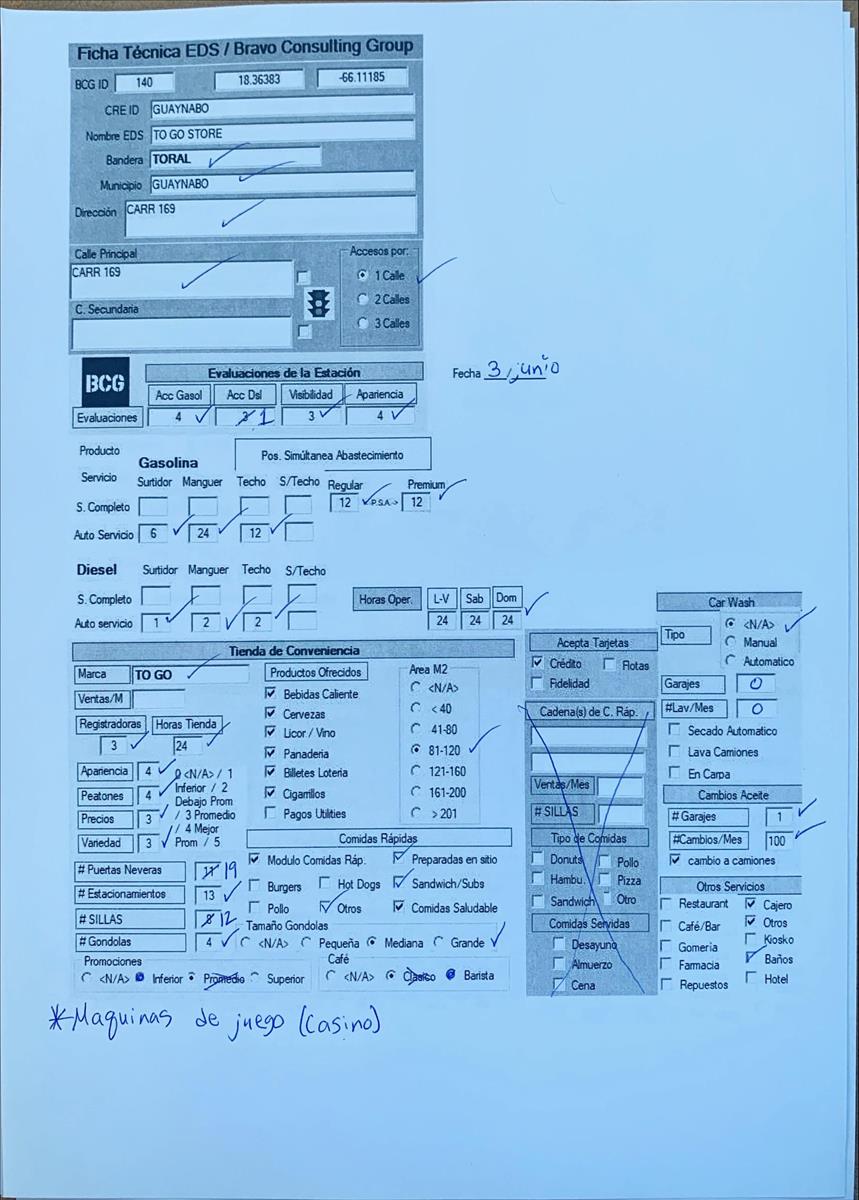 Ficha Técnica EDS / Bravo Consulting Group
BCG ID 140 18.36383 -66.11185
CRE ID GUAYNABO
Nombre EDS TO GO STORE
Bandera TORAL
Municipio GUAYNABO
Dirección CARR 169
Calle Principal
CARR 169
C. Secundaria
Accesos por:
1 Calle
2 Calles
3 Calles
BCG
Evaluaciones de la Estación
Fecha 3, junio
Acc Gasol Acc Dsl Visibilidad Apariencia
Evaluaciones 4 3 1 3 4
Producto
Servicio
Gasolina
Pos. Simúltanea Abastecimiento
Surtidor Manguer Techo S/Techo Regular Premium
S. Completo 12 P.S.A-> 12
Auto Servicio 6 24 12
Diesel Surtidor Manguer Techo S/Techo
S. Completo
Auto servicio 1 2 2
Horas Oper. L-V Sab Dom
24 24 24
Tienda de Conveniencia
Marca TO GO
Ventas/M
Registradoras Horas Tienda
3 24
Apariencia 4
Peatones 4
Precios 3
Variedad 3
0 <N/A> / 1
Inferior / 2
Debajo Prom
/ 3 Promedio
/ 4 Mejor
Prom / 5
Productos Ofrecidos
Bebidas Caliente
Cervezas
Licor / Vino
Panaderia
Billetes Loteria
Cigarrillos
Pagos Utilities
Area M2
<N/A>
< 40
41-80
81-120
121-160
161-200
> 201
# Puertas Neveras 19
# Estacionamientos 13
# SILLAS 8 12
# Gondolas 4
Comidas Rápidas
Modulo Comidas Ráp. Preparadas en sitio
Burgers Hot Dogs Sandwich/Subs
Pollo Otros Comidas Saludable
Tamaño Gondolas
<N/A> Pequeña Mediana Grande
Promociones
<N/A> Inferior Promedio Superior
Café
<N/A> Clasico Barista
Acepta Tarjetas
Crédito Flotas
Fidelidad
Cadena(s) de C. Ráp.
Ventas/Mes
# SILLAS
Tipo de Comidas
Donuts Pollo
Hambu. Pizza
Sandwich Otro
Comidas Servidas
Desayuno
Almuerzo
Cena
Car Wash
Tipo
<N/A>
Manual
Automatico
Garajes 0
#Lav/Mes 0
Secado Automatico
Lava Camiones
En Carpa
Cambios Aceite
# Garajes 1
#Cambios/Mes 100
cambio a camiones
Otros Servicios
Restaurant Cajero
Café/Bar Otros
Gomeria Kiosko
Farmacia Baños
Repuestos Hotel
*Maquinas de juego (casino)